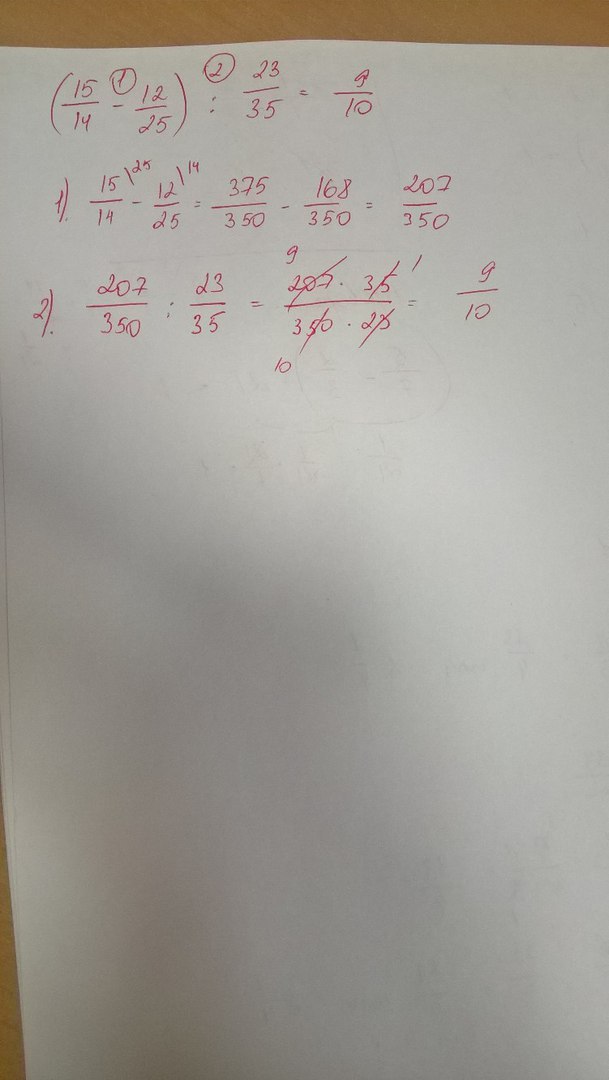 (15/14 - ① 12/25) : ② 23/35 = 9/10
1). 15/14 \25 - 12/25 \14 = 375/350 - 168/350 = 207/350
2). 207/350 : 23/35 = 9 207 · 35 1 / 10 350 · 23 = 9/10